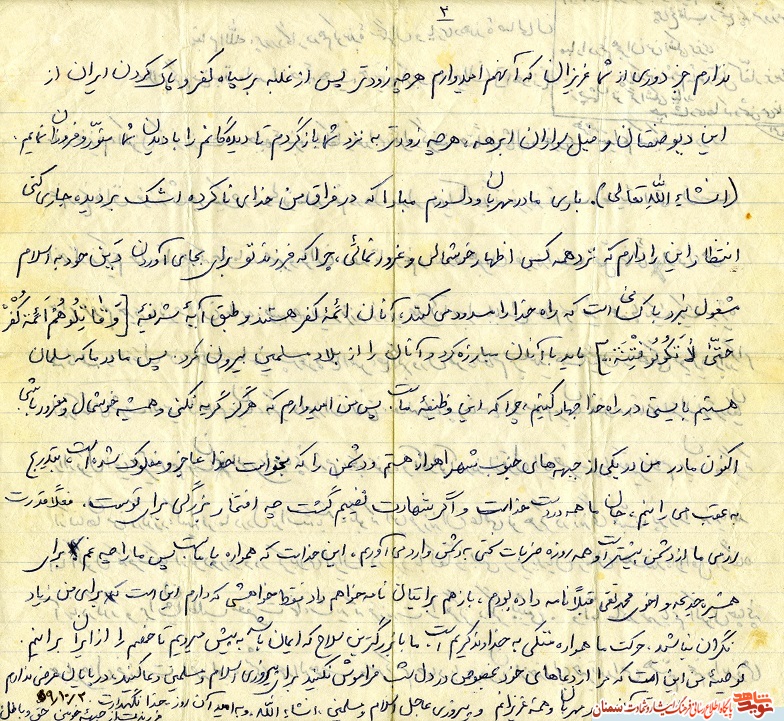 ۲
ندارم جز دوری از شما عزیزان که آنهم امیدوارم هرچه زودتر پس از غلبه بر سپاه کفر و پاک کردن ایران از
این دیو صفتان و فیل سواران ابرهه، هرچه زودتر به نزد شما بازگردم تا دیدگانم را با دیدن شما منور و فروزان نمایم.
(انشاء الله تعالی). باری مادر مهربان و دلسوزم مبادا که در فراق من خدای ناکرده اشک بر دیده جاری کنی
انتظار این را دارم که نزد همه کس اظهار خوشحالی و غرور نمائی، چرا که فرزند تو برای بجای آوردن دین خود به اسلام
مشغول نبرد با کسانی است که راه خدا را مسدود می‌کنند، آنان ائمهٔ کفر هستند و طبق آیهٔ شریفهٔ [وَقاتِلُوهُمْ اَئِمَةَ کُفْر
حَتّیٰ لاٰ تَکُونُ فِتْنِةَ..] باید با آنان مبارزه کرد و آنان را از بلاد مسلمین بیرون کرد. پس مادر ما که مسلمان
هستیم بایستی در راه خدا جهاد کنیم، چرا که این وظیفهٔ ماست. پس من امیدوارم که هرگز گریه نکنی و همیشه خوشحال و مغرور باشی
اکنون مادر من در یکی از جبهه‌های جنوب شهر اهواز هستم و دشمن را که بخواست خدا عاجز و مفلوک شده است بتدریج
به عقب می‌رانیم، جان ما همه در دست خداست و اگر شهادت نصیبم گشت چه افتخار بزرگی برای توست. فعلاً قدرت
رزمی ما از دشمن بیشتر است و همه روزه ضربات سختی به دشمن وارد می‌آوریم، این خداست که همواره با ماست پس ما را چه غم برای
همشیره خدیجه و اخوی محمدتقی قبلاً نامه داده بودم، باز هم برایتان نامه خواهم داد فقط خواهشی که دارم این است که برای من زیاد
نگران نباشید. حرکت ما همواره متکی به خداوند کریم است ما با بزرگترین سلاح که ایمان باشد به پیش میرویم تا خصم را از ایران برانیم.
توصیهٔ من این است که مرا از دعاهای خود بخصوص در دل شب فراموش نکنید برای پیروزی اسلام و مسلمین دعا کنید، در پایان عرضی ندارم
مهربان و همهٔ عزیزانم و پیروزی عاجل اسلام و مسلمین. انشاء الله. به امید آن روز. خدا نگهدارت ۵۹/۱۰/۲
فرزندت از جبههٔ خونین حق و باطل
نوید شاهد
پایگاه اطلاع رسانی فرهنگ ایثار و شهادت سمنان